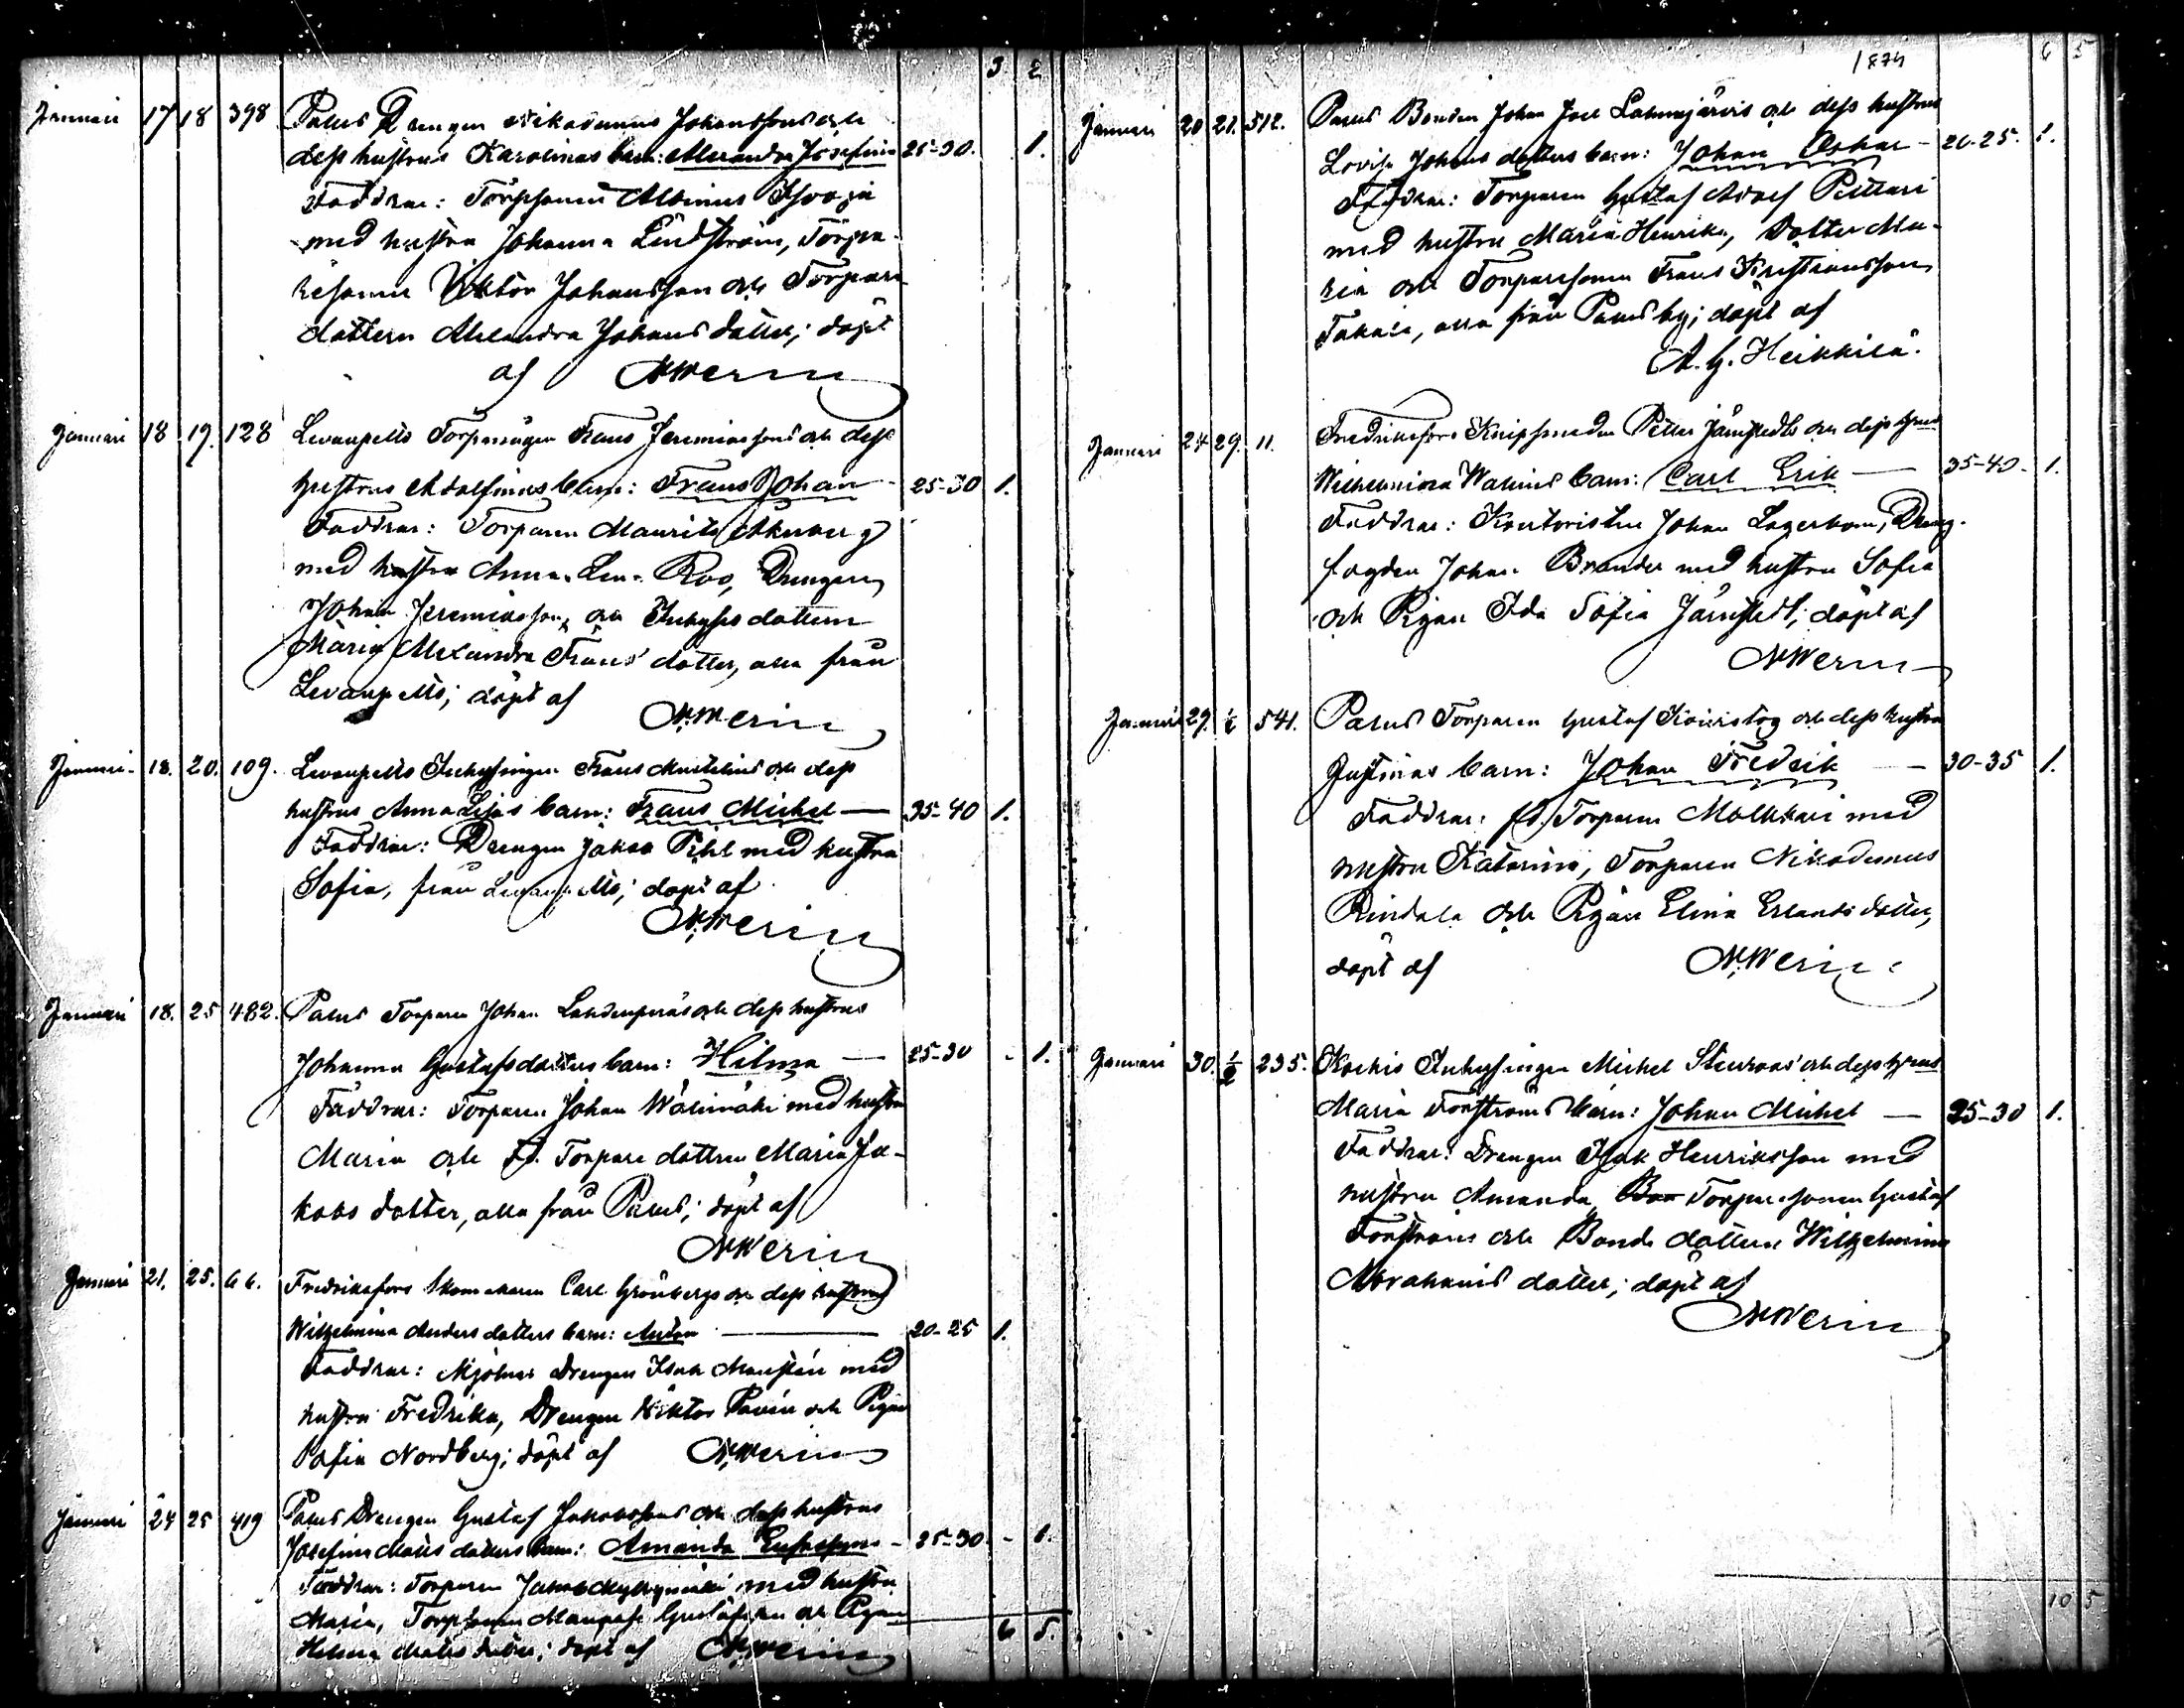 3 2
Januari 17 18 398 Palus Drengen Nikodemus Johanssons och
dess hustrus Karolinas barn: Alexandra Josefina 25-30. 1.
Faddrar: Torpsonen Albinus
med hustru Johanna Lindström, Torpa-
resonen Viktor Johansson och Torpare
dottern Alexandra Johansdotter; döpt
af NWerin
Januari 18 19. 128 Levanpelto Torpmågen Frans Jeremiassons och dess
hustrus Adolfinas barn: Frans Johan - 25-30 1.
Faddrar: Torparen Maurits Åkerberg
med hustru Anna Lena Roo, Drengen
Johan Jeremiasson, och Inhyses dottern
Maria Alexandra Frans dotter, alla från
Levanpelto; döpt af
N.Werin
Januari 18. 20. 109. Levanpelto Inhysingen Frans Mustelins och dess
hustrus Anna Lisas barn: Frans Michel — 35-40 1.
Faddrar: Drengen Jakob Pihl med hustru
Sofia, från Levanpelto; döpt af
N.Werin
Januari 18. 25 482. Palus Torparen Johan Lahdenperäs och dess hustrus
Johanna Gustafsdotters barn: Hilma — 25-30 - 1.
Faddrar: Torparen Johan Wälimäki med hustru
Maria och fd. Torpare dottren Maria Ja-
kobs dotter, alla från Palus; döpt af
NWerin
Januari 21. 25. 66. Fredriksfors Skomakaren Carl Grönbergs och dess hustrus
Wilhelmina Anders dotters barn: Anton — 20-25 1.
Faddrar: Mjölnar Drengen Isak med
hustru Fredrika, Drengen Viktor och Pigan
Sofia Nordberg; döpt af N.Werin
Januari 24 25 419 Palus Drengen Gustaf Jakobssons och dess hustrus
Josefina Matts dotters barn: Amanda - 25-30. - 1.
Faddrar: Torparen Jakob Myllymäki med hustru
Maria, Torpsonen Gustafsson och Pigan
Helena Matts dotter; döpt af N.Werin
6 5.
1874 6 5
Januari 20 21. 512. Palus Bonden Johan Joel Lahnajärvis och dess hustrus
Lovisa Johans dotters barn: Johan Oskar - 20-25. 1.
Faddrar: Torparen Gustaf Adolf Pettari
med hustru Maria Henrika, Dotter Ma-
ria och Torparesonen Frans Kristiansson
Takala, alla från Palus by; döpt af
A. G. Heikkilä.
Januari 24 29. 11. Fredriksfors Knipsmeden Petter Järnstedts och dess hustrus
Wilhelmina Walins barn: Carl Erik — 35-40. 1.
Faddrar: Kontoristen Johan Lagerbom, Dreng-
fogden Johan Brander med hustru Sofia
och Pigan Ida Sofia Järnstedt; döpt af
NWerin
Januari 29. 1/2 541. Palus Torparen Gustaf Koivistos och dess hustrus
Gustavas barn: Johan Fredrik — 30-35 1.
Faddrar: fd. Torparen Molkkari med
hustru Katarina, Torparen Nikodemus
Rindala och Pigan Elina Erlandsdotter,
döpt af N.Werin
Januari 30. 1/2 235. Koskis Inhysingen Michel Stenroos' och dess hustrus
Maria Forsströms barn: Johan Michel — 25-30 1.
Faddrar: Drengen Isak Henriksson med
hustru Amanda, Torparesonen Gustaf
Forsström och Bonde dottern Wilhelmina
Abrahams dotter; döpt af
NWerin
10 5